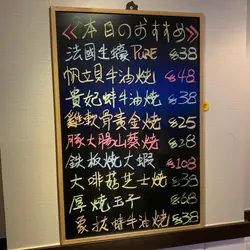 ≪本日のおすすめ≫
法國生蠔 PURE $38
帆立貝牛油燒 $48
貴妃蚌牛油燒 $38
雞軟骨黃金燒 $25
豚大腸山葵燒 $38
鉄板燒大蝦 $108
大啡菇芝士燒 $38
厚燒玉子 $68
象拔蚌牛油燒 $38